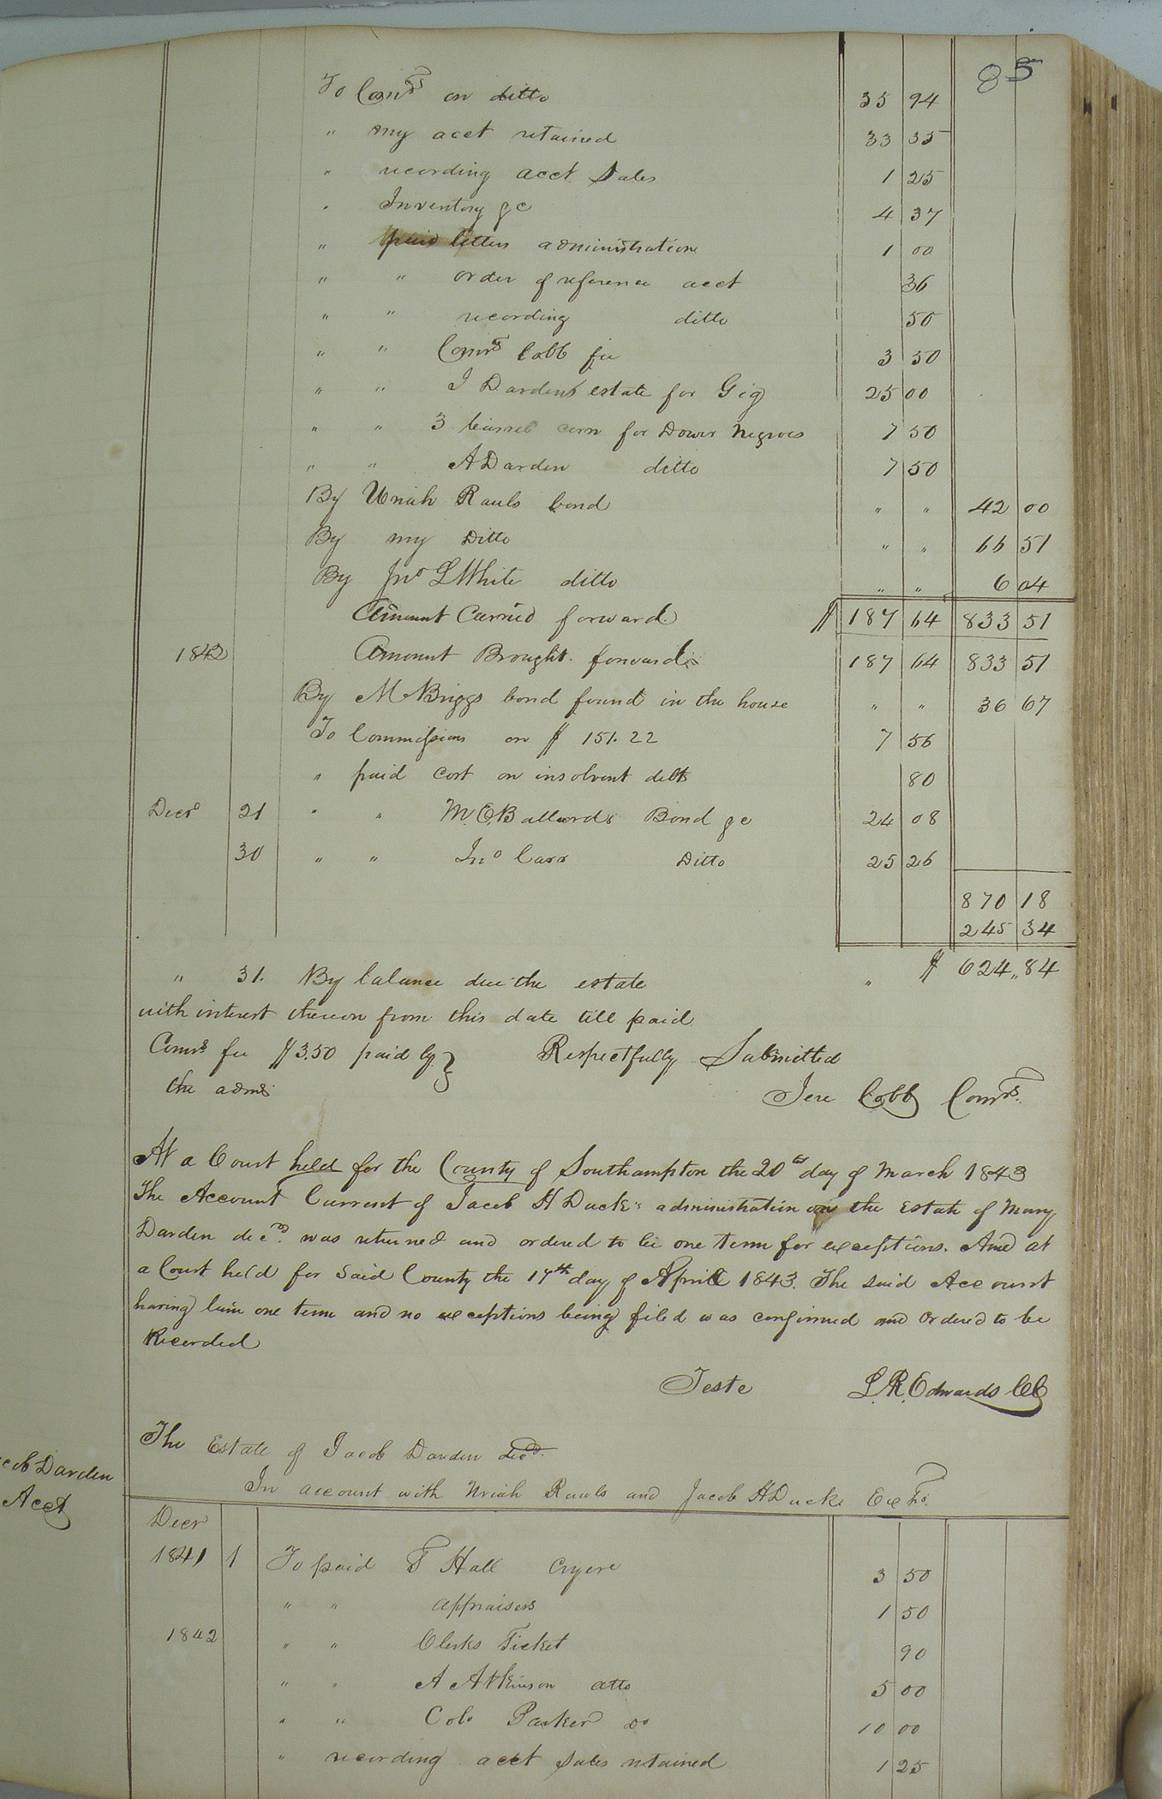 85
To Comrs on ditto 35 94
" my acct retained 33 35
" recording acct Sales 1 25
" Inventory &c 4 37
" paid letters administration 1 00
" " order of reference acct 36
" " recording ditto 50
" " Comrs Cobb fee 3 50
" " J Dardens estate for Gig 25 00
" " 3 barrels corn for Dower Negroes 7 50
" " A Darden ditto 7 50
By Uriah Rawls bond " " 42 00
By my Ditto " " 66 51
By Jno L White ditto " " 6 04
Amount Carried forward $ 187 64 833 51
1842 Amount Brought forward 187 64 833 51
By M Briggs bond found in the house " " 36 67
To Commissions on $ 151.22 7 56
" paid cost on insolvent debts 80
Decr 21 " " Bond &c 24 08
30 " " Jno Carr Ditto 25 26
870 18
245 34
" 31. By balance due the estate " $ 624,,84
with interest thereon from this date till paid
Comrs fee $3.50 paid by } Respectfully Submitted
the admr Jere Cobb Comrs.
At a Court held for the County of Southampton the 20th day of March 1843
The Account Current of Jacob H Duck's administration on the Estate of Mary
Darden decd. was returned and ordered to lie one term for exceptions. And at
a Court held for said County the 17th day of April 1843. The said Account
having lain one term and no exceptions being filed was confirmed and Ordered to be
Recorded
Teste L. R. Edwards CC
The Estate of Jacob Darden decd.
cob Darden
In account with Uriah Rawls and Jacob H Ducke Exctrs.
Acct
Decr
1841 1 To paid T Hall Cryer 3 50
" " appraisers 1 50
1842 " " Clerks Ticket 90
" " A Atkinson atto 5 00
" " Colo Parker do 10 00
" recording acct Sales retained 1 25